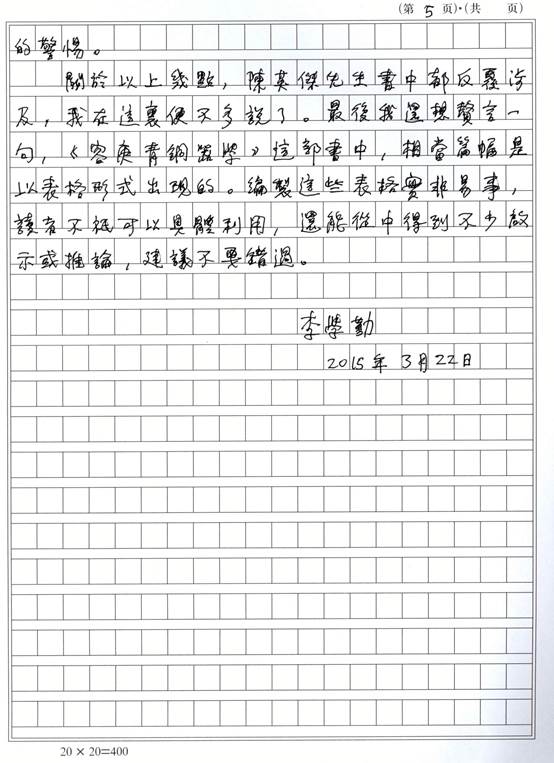 (第 5 页)·(共 页)
的警惕。
關於以上幾點，陳英傑先生書中都反覆涉
及，我在這裏便不多說了。最後我還想贅言一
句，《容庚青銅器學》這部書中，相當篇幅是
以表格形式出現的。編製這些表格實非易事，
讀者不祇可以具體利用，還能從中得到不少啟
示或推論，建議不要錯過。
李學勤
2015年3月22日
20 × 20=400